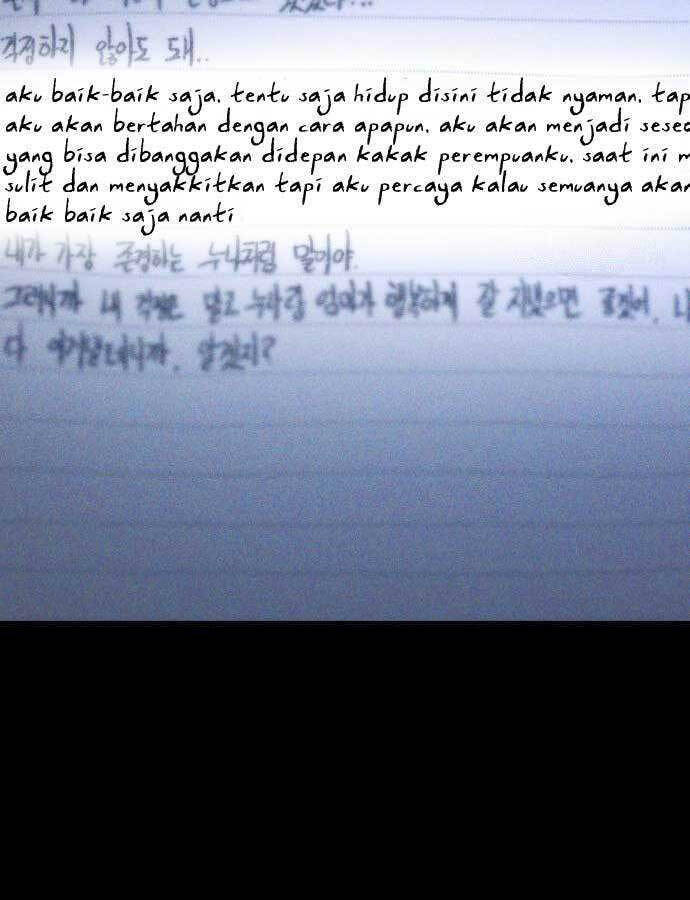 걱정하지 않아도 돼..
aku baik-baik saja. tentu saja hidup disini tidak nyaman. tap
aku akan bertahan dengan cara apapun. aku akan menjadi sese
yang bisa dibanggakan didepan kakak perempuanku. saat ini m
sulit dan menyakkitkan tapi aku percaya kalau semuanya akan
baik baik saja nanti
내가 가장 존경하는 누나처럼 말이야.
그러니까 내 걱정은 말고 누나랑 엄마가 행복하게 잘 지냈으면 좋겠어.
다 알겠지?